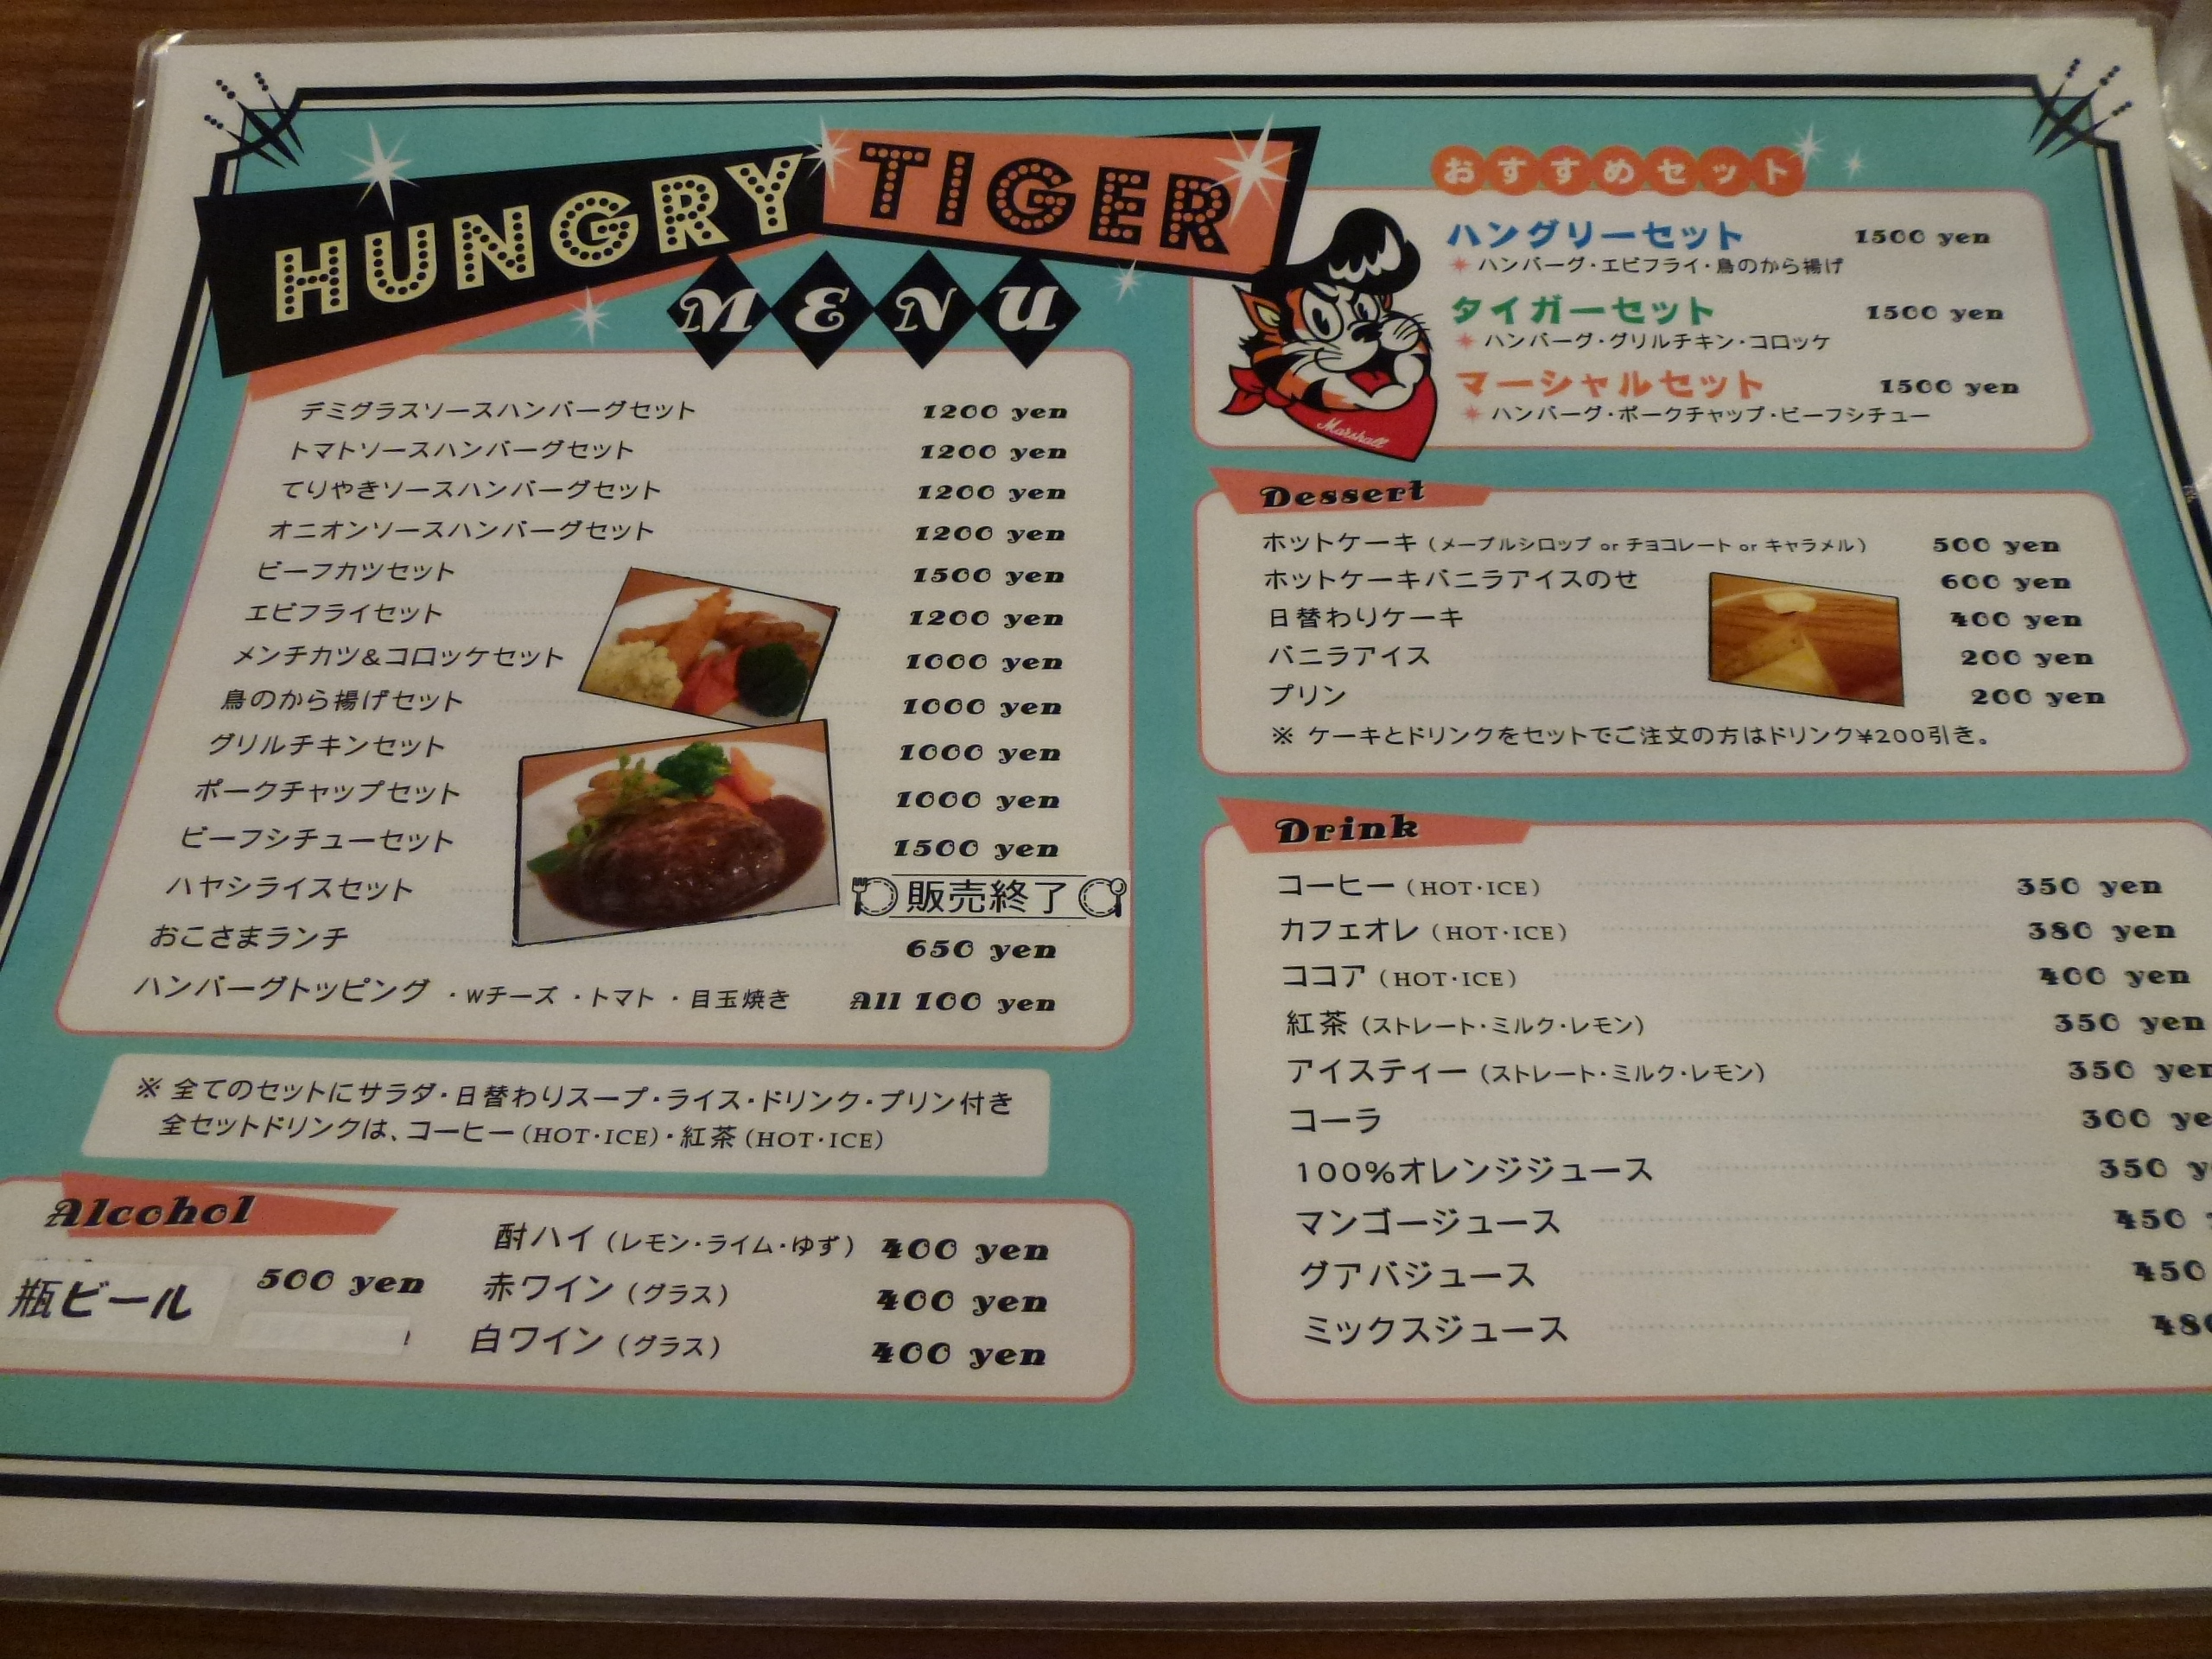 HUNGRY TIGER
MENU
デミグラスソースハンバーグセット 1200 yen
トマトソースハンバーグセット 1200 yen
てりやきソースハンバーグセット 1200 yen
オニオンソースハンバーグセット 1200 yen
ビーフカツセット 1500 yen
エビフライセット 1200 yen
メンチカツ&コロッケセット 1000 yen
鳥のから揚げセット 1000 yen
グリルチキンセット 1000 yen
ポークチャップセット 1000 yen
ビーフシチューセット 1500 yen
ハヤシライスセット 販売終了
おこさまランチ 650 yen
ハンバーグトッピング ・Wチーズ ・トマト ・目玉焼き All 100 yen
※ 全てのセットにサラダ・日替わりスープ・ライス・ドリンク・プリン付き
全セットドリンクは、コーヒー(HOT・ICE)・紅茶(HOT・ICE)
Alcohol
瓶ビール 500 yen
酎ハイ(レモン・ライム・ゆず) 400 yen
赤ワイン(グラス) 400 yen
白ワイン(グラス) 400 yen
おすすめセット
ハングリーセット 1500 yen
ハンバーグ・エビフライ・鳥のから揚げ
タイガーセット 1500 yen
ハンバーグ・グリルチキン・コロッケ
マーシャルセット 1500 yen
ハンバーグ・ポークチャップ・ビーフシチュー
Marshall
Dessert
ホットケーキ(メープルシロップ or チョコレート or キャラメル) 500 yen
ホットケーキバニラアイスのせ 600 yen
日替わりケーキ 400 yen
バニラアイス 200 yen
プリン 200 yen
※ ケーキとドリンクをセットでご注文の方はドリンク¥200引き。
Drink
コーヒー(HOT・ICE) 350 yen
カフェオレ(HOT・ICE) 380 yen
ココア(HOT・ICE) 400 yen
紅茶(ストレート・ミルク・レモン) 350 yen
アイスティー(ストレート・ミルク・レモン) 350 yen
コーラ 300 ye
100%オレンジジュース 350 y
マンゴージュース 450
グアバジュース 450
ミックスジュース 480